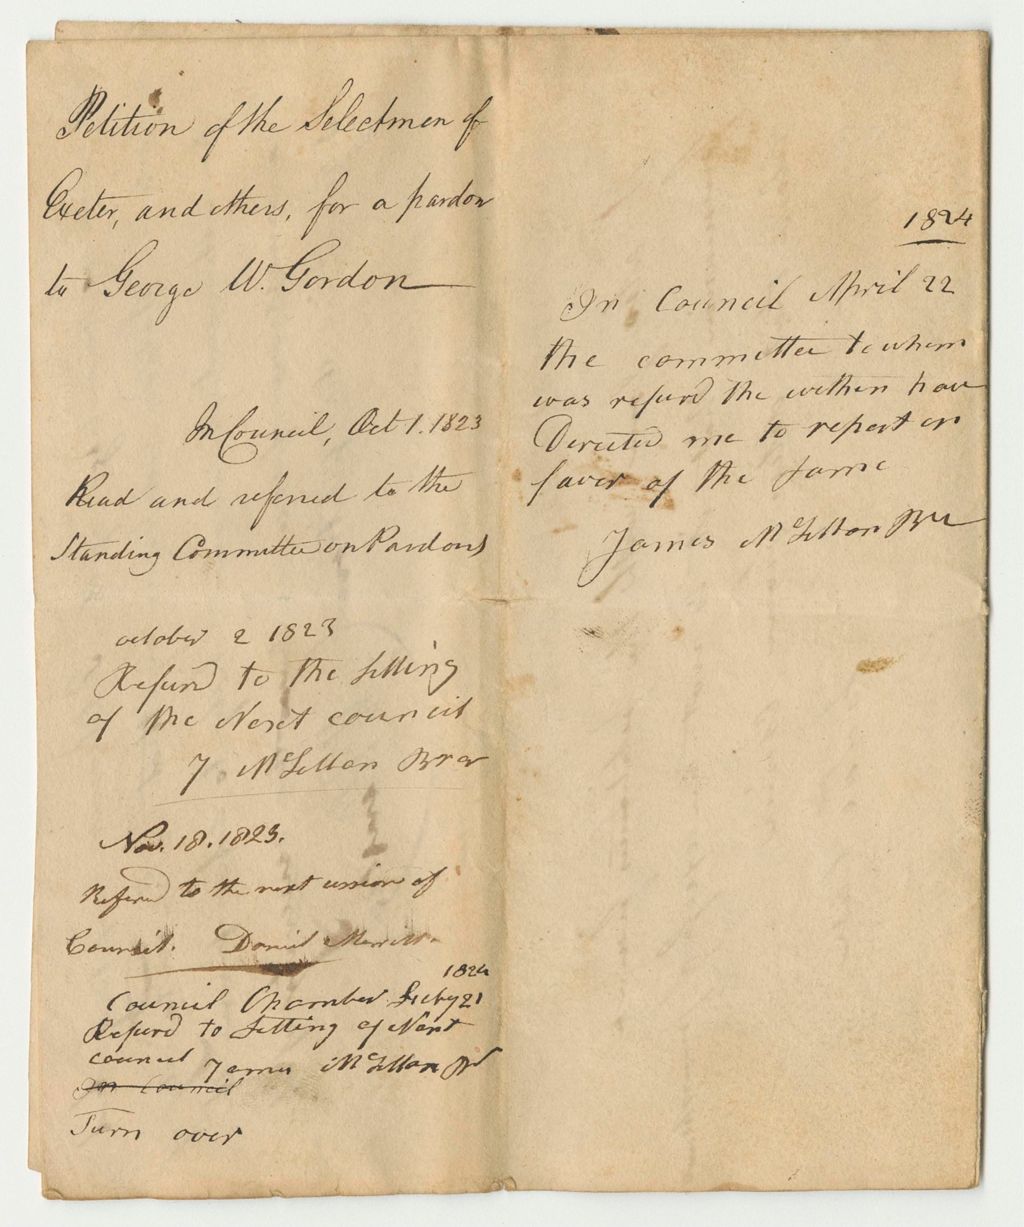 Petition of the Selectmen of
Exeter, and others, for a pardon
to George W. Gordon
In Council, Oct 1. 1823
Read and referred to the
Standing Committee on Pardons
october 2 1823
Refurd to the Sitting
of the Next council
J McLellan
Nov. 18. 1823.
Referred to the next session of
Council. Daniel Merrill.
1824
Council Chamber Feby 21
Refurd to Sitting of Next
council James McLellan
In Council
Turn over
1824
In Council April 22
the committee to whom
was refurd the within have
Directed me to report in
favor of the same
James McLellan